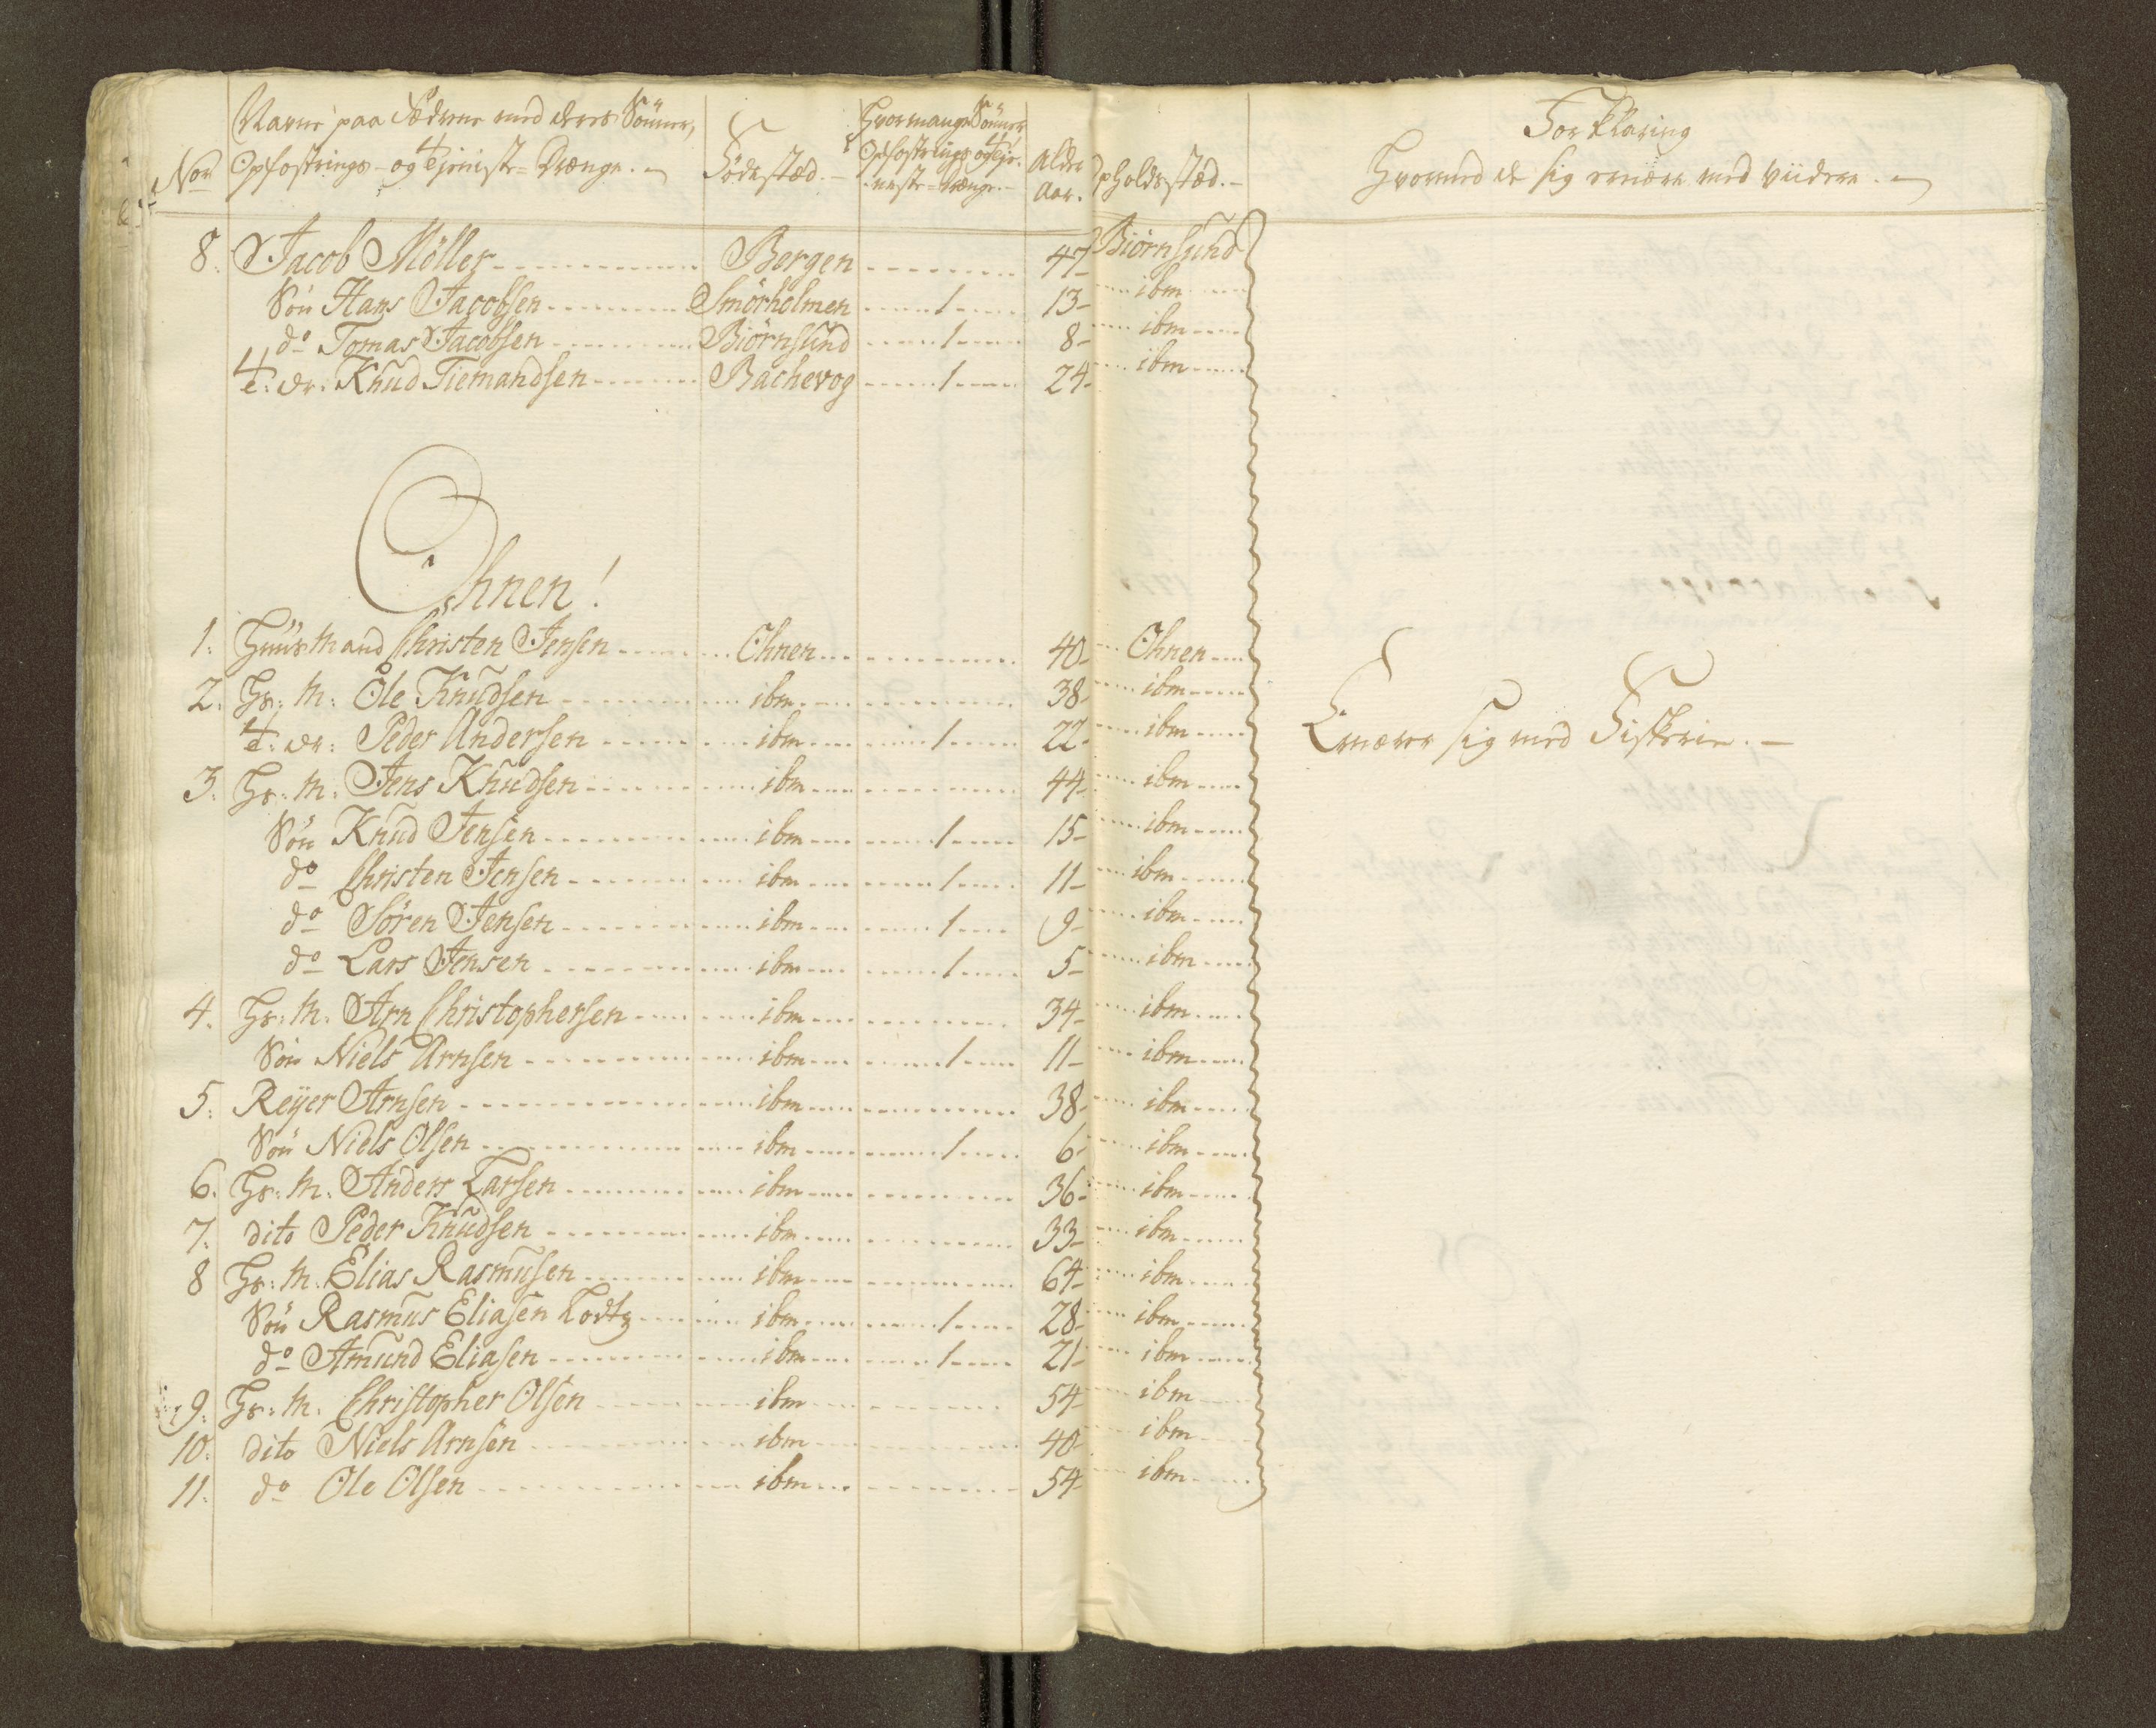 Nor Navne paa Fædrene med deres Sönner, Opfostrings- og Tjeniste-Drænge. Födestæd. Hvormange Sönner Opfostrings og Tje- neste-Drænge. Alder Aar. Opholdsstæd.
Forklaring
Hvormed de sig ernære med viidere.
8. Jacob Möller Bergen 47 Biörnsund
Sön Hans Jacobsen Smörholmen 1 13 ibm
do Tomas Jacobsen Biörnsund 1 8 ibm
te: dr: Knud Tiemandsen Bachevog 1 24 ibm
Ohnen!
1. Huusmand Christen Jensen Ohnen 40 Ohnen
2. Hs: M: Ole Knudsen ibm 38 ibm
te: dr: Peder Andersen ibm 1 22 ibm
Ernærer sig med Fiskerie.
3. Hs: M: Jens Knudsen ibm 44 ibm
Sön Knud Jensen ibm 1 15 ibm
do Christen Jensen ibm 1 11 ibm
do Sören Jensen ibm 1 9 ibm
do Lars Jensen ibm 1 5 ibm
4. Hs: M: Arn Christophersen ibm 34 ibm
Sön Niels Arnsen ibm 1 11 ibm
5. Reÿer Arnsen ibm 38 ibm
Sön Niels Olsen ibm 1 6 ibm
6. Hs: M: Anders Larsen ibm 36 ibm
7. dito Peder Knudsen ibm 33 ibm
8 Hs: M: Elias Rasmusen ibm 64 ibm
Sön Rasmus Eliasen ibm 1 28 ibm
do Amund Eliasen ibm 1 21 ibm
9. Hs: M: Christopher Olsen ibm 54 ibm
10. dito Niels Arnsen ibm 40 ibm
11. do Ole Olsen ibm 54 ibm